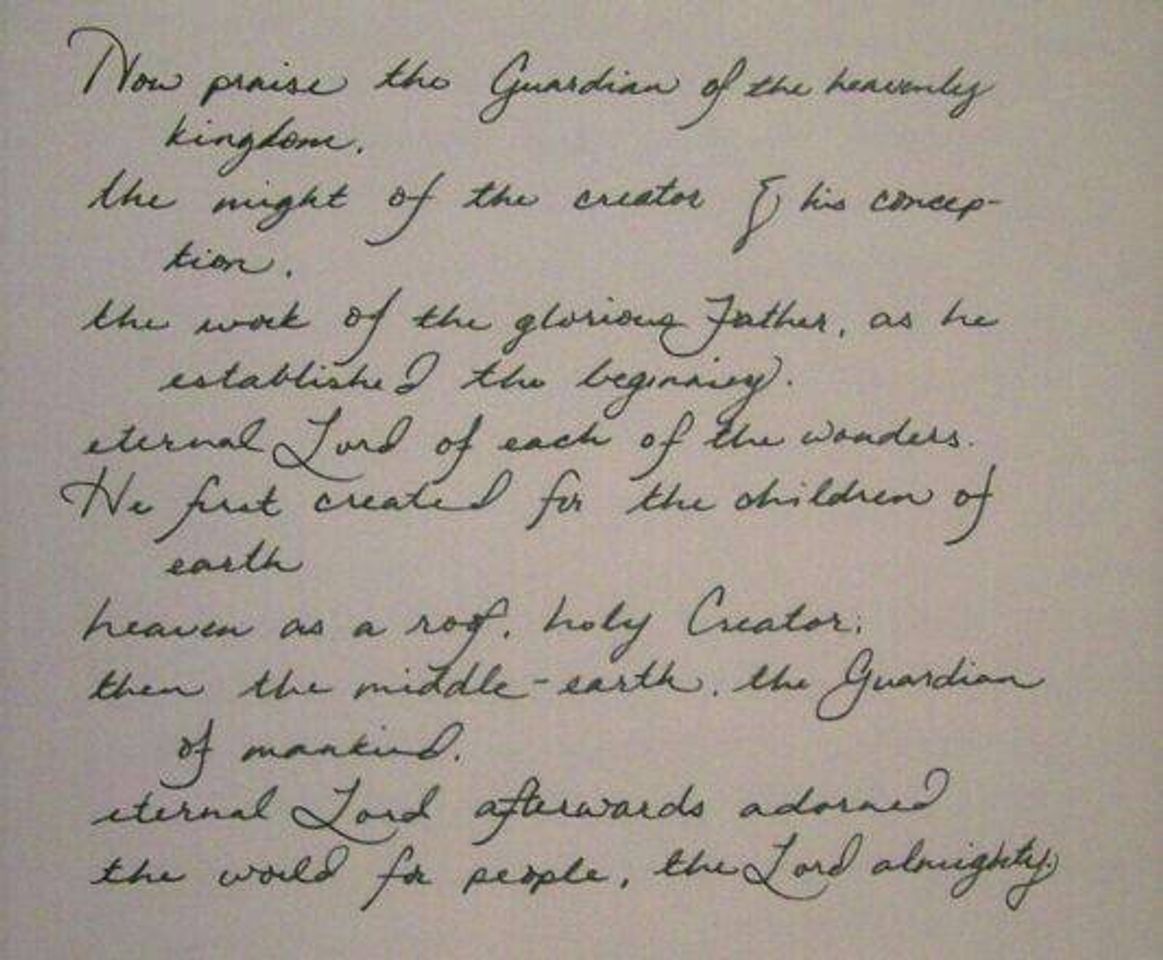 Now praise the Guardian of the heavenly
kingdom,
the might of the creator & his concep-
tion,
the work of the glorious Father, as he
established the beginning,
eternal Lord of each of the wonders.
He first created for the children of
earth
heaven as a roof, holy Creator;
then the middle-earth, the Guardian
of mankind,
eternal Lord afterwards adorned
the world for people, the Lord almighty.